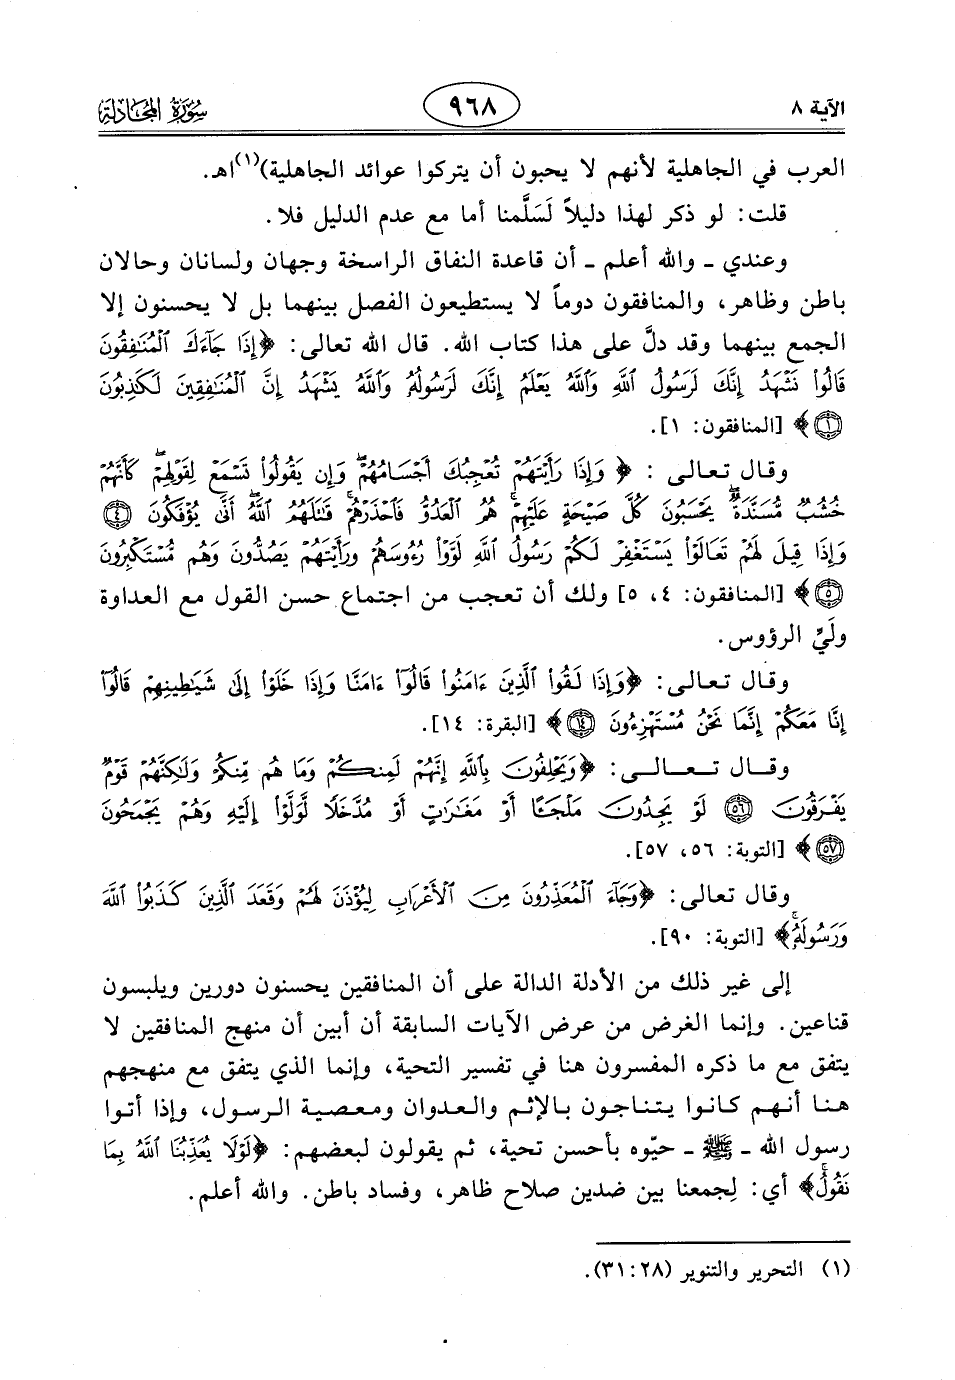 الآية ٨
٩٦٨
سورة المجادلة
العرب في الجاهلية لأنهم لا يحبون أن يتركوا عوائد الجاهلية)(١)اهـ.
قلت: لو ذكر لهذا دليلاً لَسَلَّمنا أما مع عدم الدليل فلا.
وعندي ـ والله أعلم ـ أن قاعدة النفاق الراسخة وجهان ولسانان وحالان
باطن وظاهر، والمنافقون دوماً لا يستطيعون الفصل بينهما بل لا يحسنون إلا
الجمع بينهما وقد دلَّ على هذا كتاب الله. قال الله تعالى: ﴿إِذَا جَآءَكَ ٱلْمُنَٰفِقُونَ
قَالُوا۟ نَشْهَدُ إِنَّكَ لَرَسُولُ ٱللَّهِ وَٱللَّهُ يَعْلَمُ إِنَّكَ لَرَسُولُهُۥ وَٱللَّهُ يَشْهَدُ إِنَّ ٱلْمُنَٰفِقِينَ لَكَٰذِبُونَ
١﴾ [المنافقون: ١].
وقال تعالى : ﴿وَإِذَا رَأَيْتَهُمْ تُعْجِبُكَ أَجْسَامُهُمْ ۖ وَإِن يَقُولُوا۟ تَسْمَعْ لِقَوْلِهِمْ ۖ كَأَنَّهُمْ
خُشُبٌ مُّسَنَّدَةٌ ۖ يَحْسَبُونَ كُلَّ صَيْحَةٍ عَلَيْهِمْ ۚ هُمُ ٱلْعَدُوُّ فَٱحْذَرْهُمْ ۚ قَٰتَلَهُمُ ٱللَّهُ ۖ أَنَّىٰ يُؤْفَكُونَ ٤
وَإِذَا قِيلَ لَهُمْ تَعَالَوْا۟ يَسْتَغْفِرْ لَكُمْ رَسُولُ ٱللَّهِ لَوَّوْا۟ رُءُوسَهُمْ وَرَأَيْتَهُمْ يَصُدُّونَ وَهُم مُّسْتَكْبِرُونَ
٥﴾ [المنافقون: ٤، ٥] ولك أن تعجب من اجتماع حسن القول مع العداوة
ولَيِّ الرؤوس.
وقال تعالى: ﴿وَإِذَا لَقُوا۟ ٱلَّذِينَ ءَامَنُوا۟ قَالُوٓا۟ ءَامَنَّا وَإِذَا خَلَوْا۟ إِلَىٰ شَيَٰطِينِهِمْ قَالُوٓا۟
إِنَّا مَعَكُمْ إِنَّمَا نَحْنُ مُسْتَهْزِءُونَ ١٤﴾ [البقرة: ١٤].
وقال تعالى: ﴿وَيَحْلِفُونَ بِٱللَّهِ إِنَّهُمْ لَمِنكُمْ وَمَا هُم مِّنكُمْ وَلَٰكِنَّهُمْ قَوْمٌ
يَفْرَقُونَ ٥٦ لَوْ يَجِدُونَ مَلْجَـًٔا أَوْ مَغَٰرَٰتٍ أَوْ مُدَّخَلًا لَّوَلَّوْا۟ إِلَيْهِ وَهُمْ يَجْمَحُونَ
٥٧﴾ [التوبة: ٥٦، ٥٧].
وقال تعالى: ﴿وَجَآءَ ٱلْمُعَذِّرُونَ مِنَ ٱلْأَعْرَابِ لِيُؤْذَنَ لَهُمْ وَقَعَدَ ٱلَّذِينَ كَذَبُوا۟ ٱللَّهَ
وَرَسُولَهُۥ ۚ﴾ [التوبة: ٩٠].
إلى غير ذلك من الأدلة الدالة على أن المنافقين يحسنون دورين ويلبسون
قناعين. وإنما الغرض من عرض الآيات السابقة أن أبين أن منهج المنافقين لا
يتفق مع ما ذكره المفسرون هنا في تفسير التحية، وإنما الذي يتفق مع منهجهم
هنا أنهم كانوا يتناجون بالإثم والعدوان ومعصية الرسول، وإذا أتوا
رسول الله ـ ﷺ ـ حيّوه بأحسن تحية، ثم يقولون لبعضهم: ﴿لَوْلَا يُعَذِّبُنَا ٱللَّهُ بِمَا
نَقُولُ ۚ﴾ أي: لِجمعنا بين ضدين صلاح ظاهر، وفساد باطن. والله أعلم.
(١) التحرير والتنوير (٢٨:٣١).